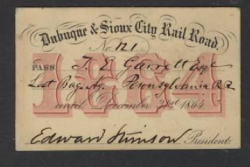 Dubuque & Sioux City Rail Road.
No. 121
PASS T. E. Garrett Esqr
1864
Bag. Ag. Pennsylvania R R
until December 31st 1864
Edward Stimson President.